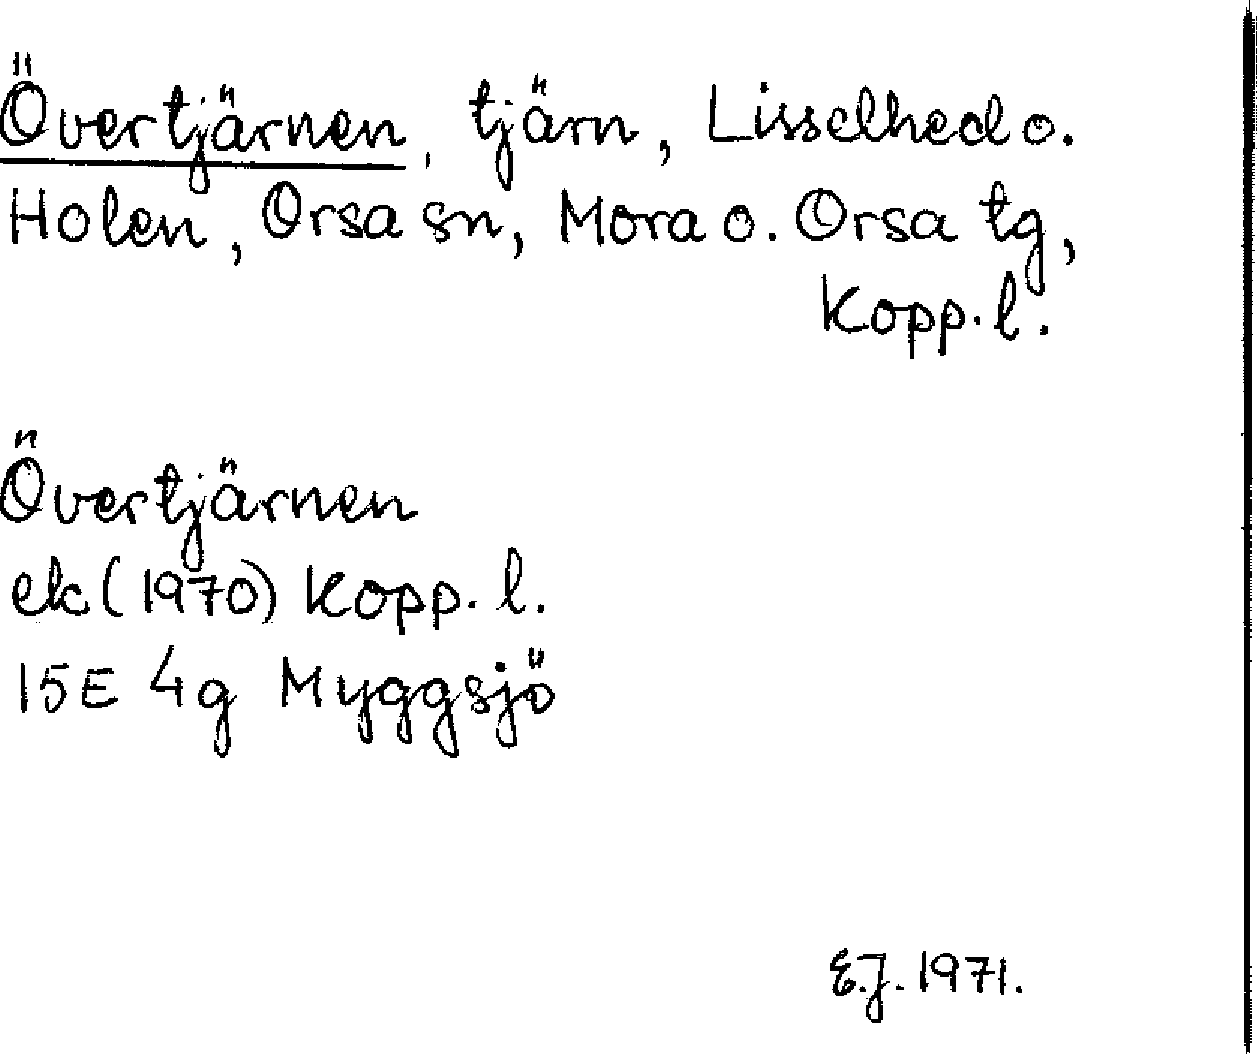 Övertjärnen, tjärn, Lisselhed o.
Holen, Orsa sn, Mora o. Orsa tg,
Kopp. l.
Övertjärnen
ek (1970) Kopp. l.
15E 4g Myggsjö
E.J. 1971.